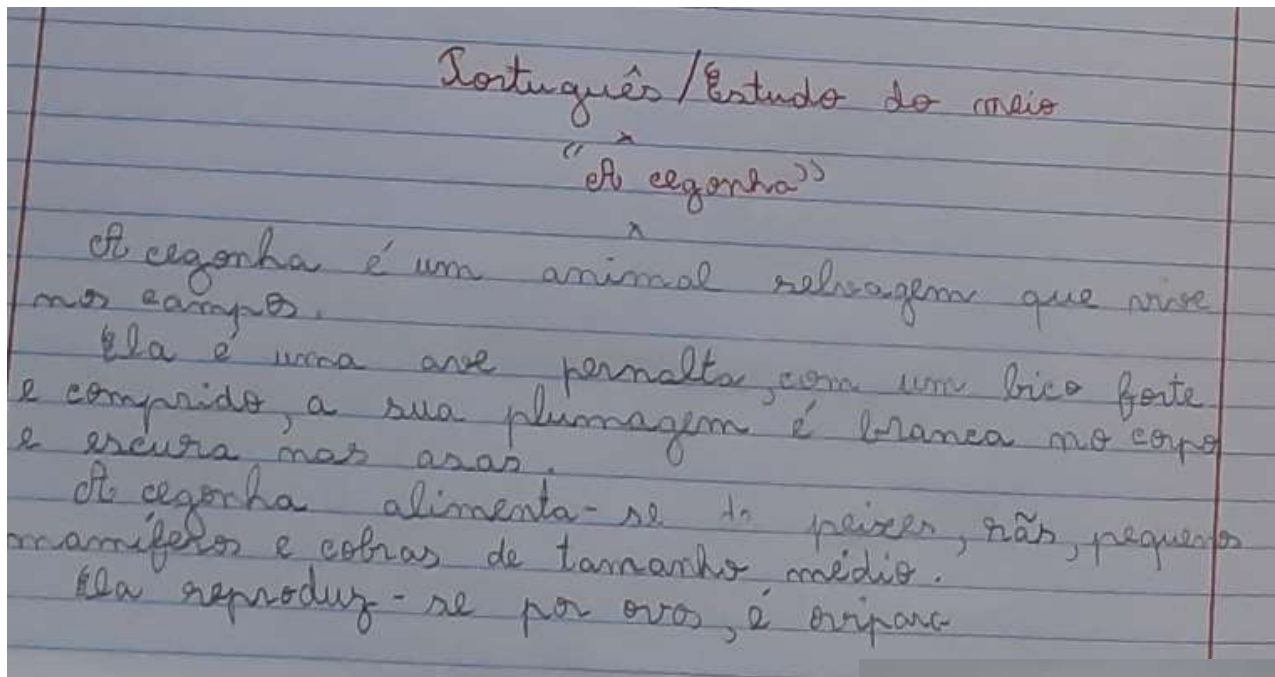 Português/Estudo do meio
"A cegonha"
A cegonha é um animal selvagem que vive
nos campos.
Ela é uma ave pernalta, com um bico forte
e comprido, a sua plumagem é branca no corpo
e escura nas asas.
A cegonha alimenta-se de peixes, rãs, pequenos
mamíferos e cobras de tamanho médio.
Ela reproduz-se por ovos, é